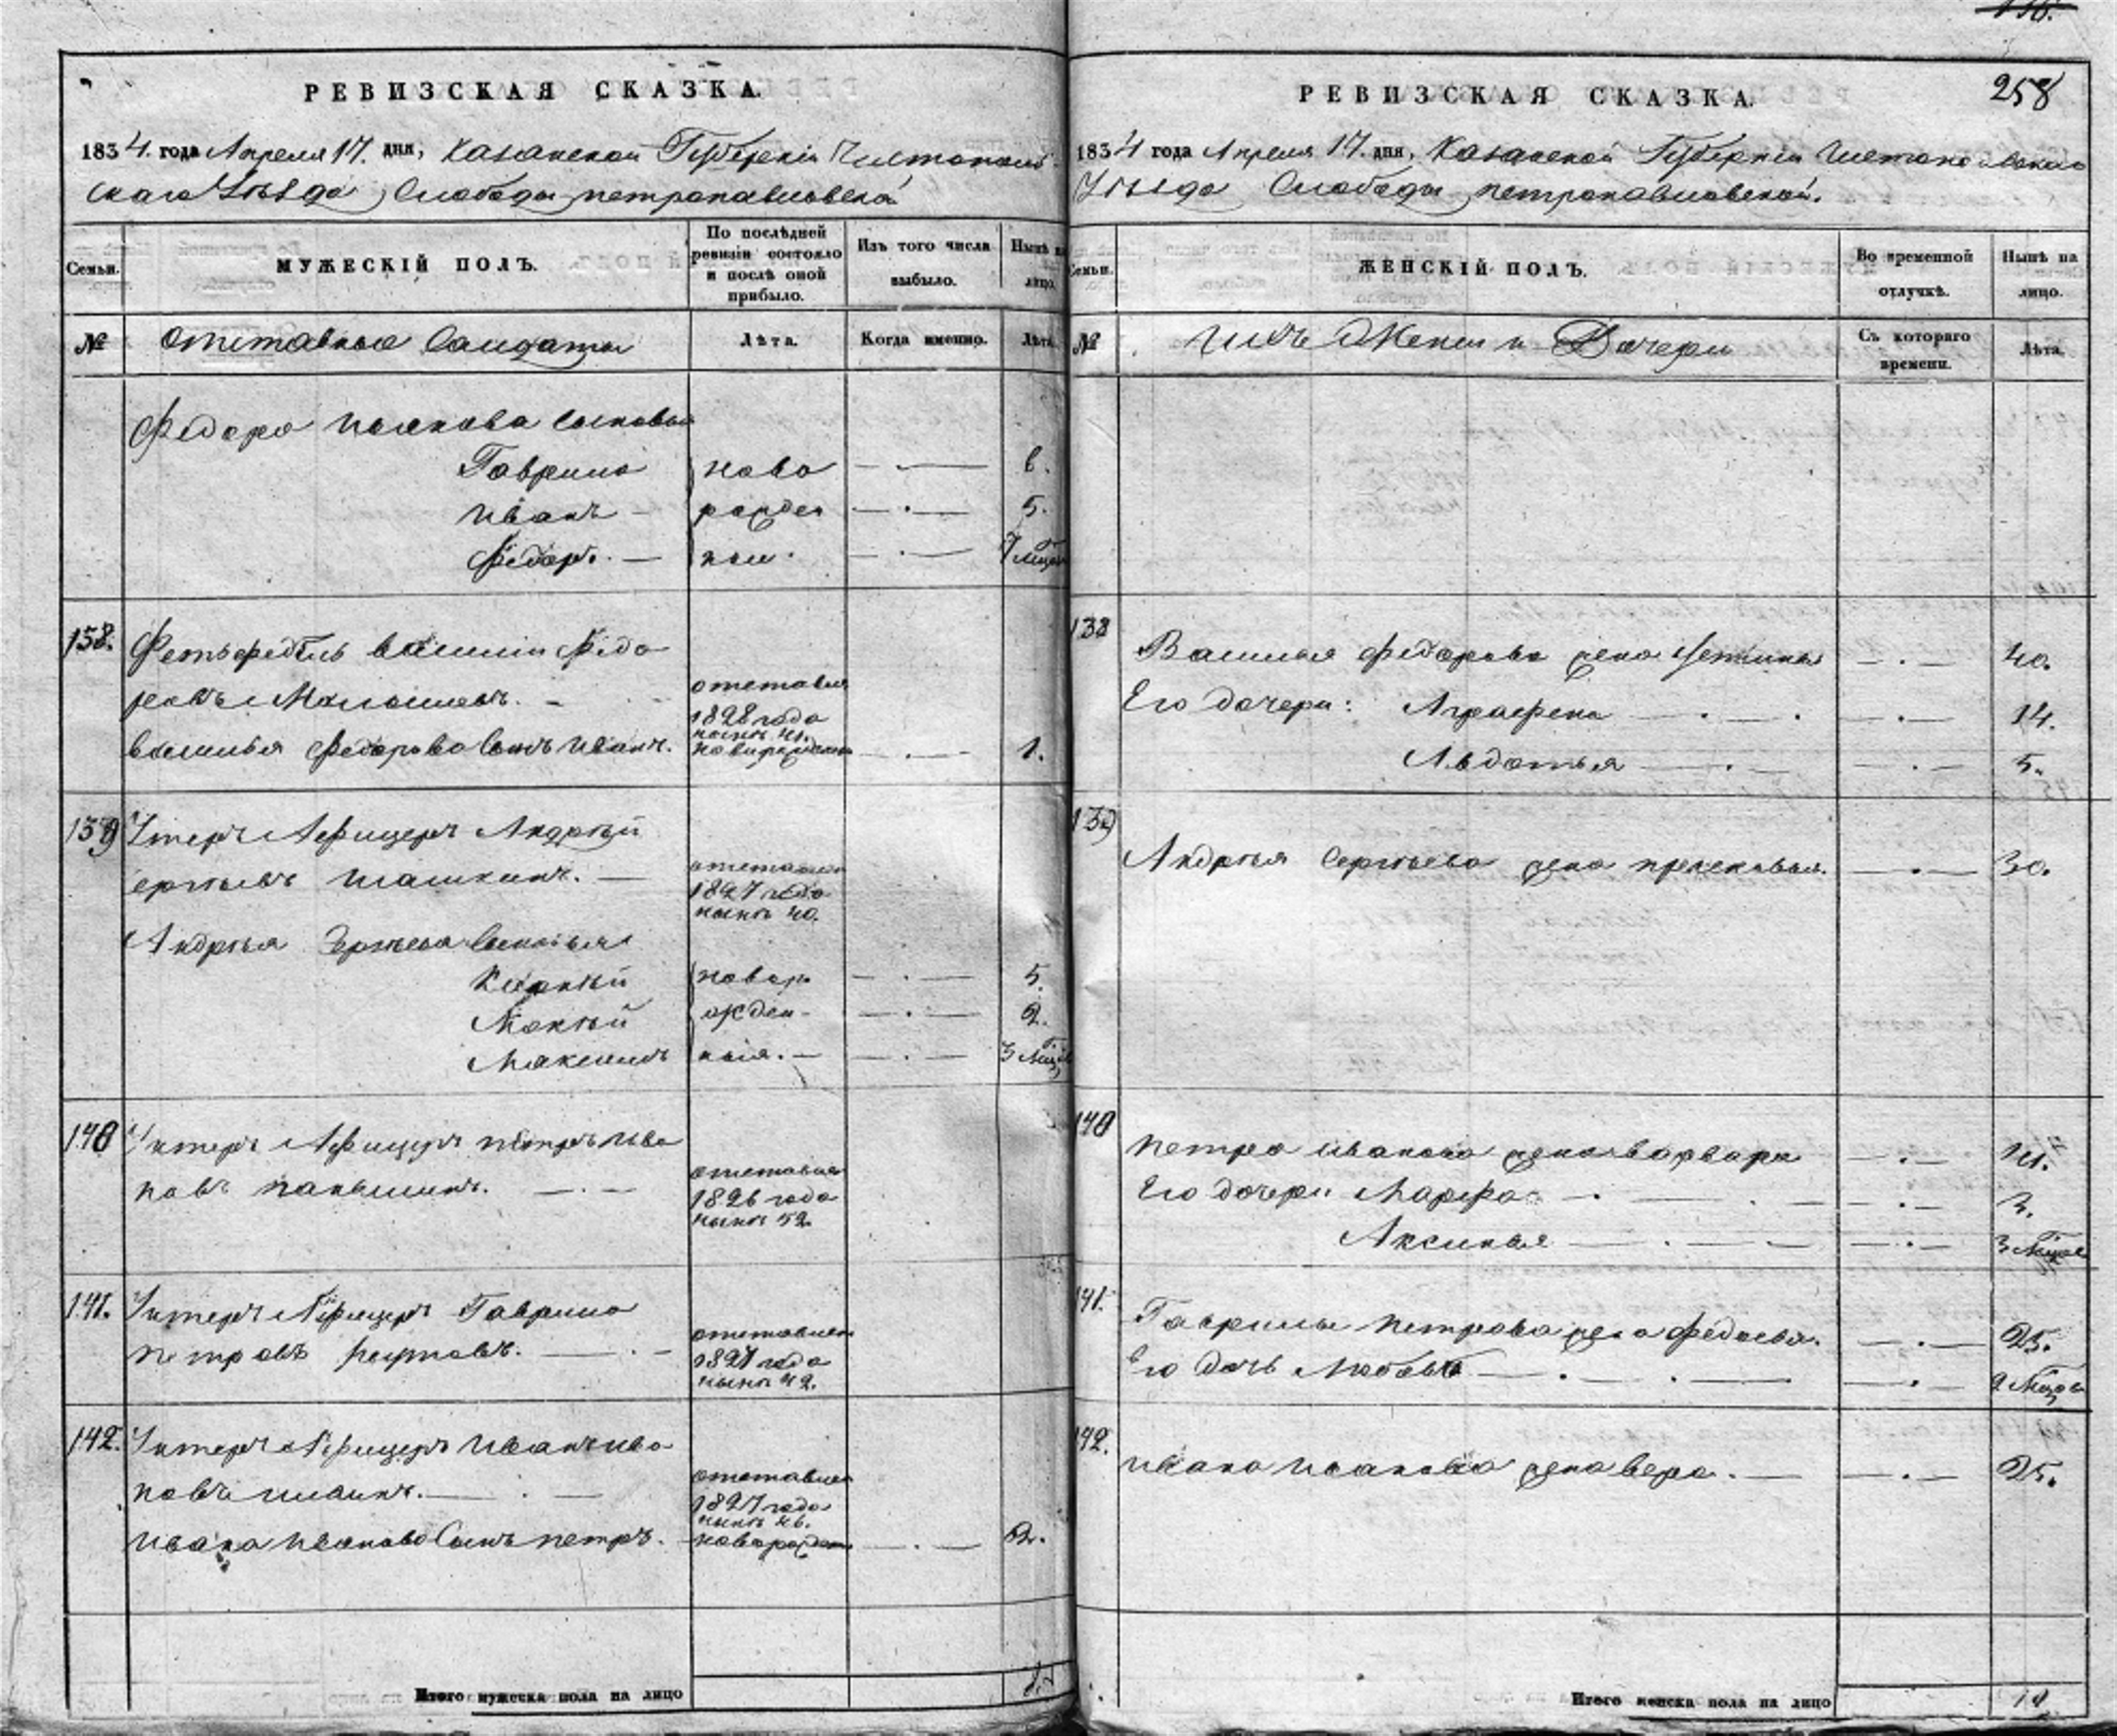 РЕВИЗСКАЯ СКАЗКА.
1834. года Апреля 17. дня, Казанской Губерніи Чистополь
скаго Уѣзда Слободы петропавловской
Семьи.
МУЖЕСКІЙ ПОЛЪ.
По послѣдней ревизіи состояло и послѣ оной прибыло.
Изъ того числа выбыло.
Нынѣ на лицо.
№
отставныя Салдаты
Лѣта.
Когда именно.
Лѣта.
Федара сыновья
Гаврила ново
Иванъ рожден 5.
Федаръ ныи
138. василій Федо
ровъ
отставлен
1828 года
нынѣ 41.
василья федорова Сынъ Иванъ. новорожден 1.
139 Унтеръ Афицеръ Андрѣй
отставлен
1827 года
нынѣ 40.
Андрѣя Сыновья
новор 5.
Мокѣй ожден 2.
Максимъ ныя. 3 Мцов
140 Унтеръ Афицеръ петръ Ива
новъ
отставлен
1826 года
нынѣ 52.
141. Унтеръ Афицеръ Гаврила
петровъ
отставлен
1827 года
нынѣ 42.
142. Унтеръ Афицеръ Иванъ ива
новъ
отставлен
1827 года
нынѣ 46.
Ивана Иванова Сынъ петръ. новорожден 2.
Итого мужеска пола на лицо
258
РЕВИЗСКАЯ СКАЗКА.
1834 года Апреля 17. дня, Казанской Губерніи Чистопольскаго
Уѣзда Слободы петропавловской.
Семьи.
ЖЕНСКІЙ ПОЛЪ.
Во временной отлучкѣ.
Нынѣ на лицо.
№
Ихъ Жены и Дочери
Съ котораго времени.
Лѣта.
138 Василья федорова жена 40.
Его дочери: Аграфена 14.
Авдотья 5.
139 Андрѣя Сергѣева жена прасковья. 30.
140 петра иванова жена варвара
Его дочери Марфа 3.
Аксинья 3 Мцов
141. Гаврилы петрова жена федосья. 25.
Его дочь Любовь Мцов
142. ивана иванова жена вера. 25.
Итого женска пола на лицо